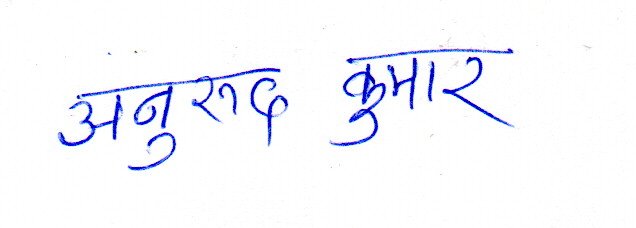 अनुरुद कुमार